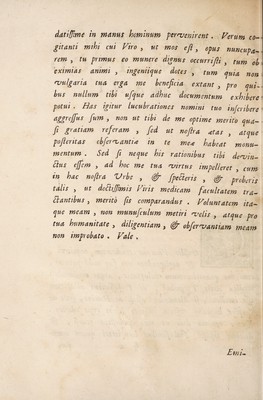 datißime in manus hominum pervenirent. Verum co-
gitanti mihi cui Viro, ut mos est, opus nuncupa-
rem, tu primus eo munere dignus occurristi, tum ob
eximias animi, ingeniique dotes, tum quia non
vulgaria tua erga me beneficia extant, pro qui-
bus nullum tibi usque adhuc documentum exhibere
potui. Has igitur lucubrationes nomini tuo inscribere
aggressus sum, non ut tibi de me optime merito qua-
si gratiam referam, sed ut nostra ætas, atque
posteritas observantiæ in te meæ habeat monu-
mentum. Sed si neque his rationibus tibi devin-
ctus essem, ad hoc me tua virtus impelleret, cum
in hac nostra Urbe, & specteris, & proberis
talis, ut doctissimis Viris medicam facultatem tra-
ctantibus, meritò sis comparandus. Voluntatem ita-
que meam, non munusculum metiri velis, atque pro
tua humanitate, diligentiam, & observantiam meam
non improbato. Vale.
Emi-